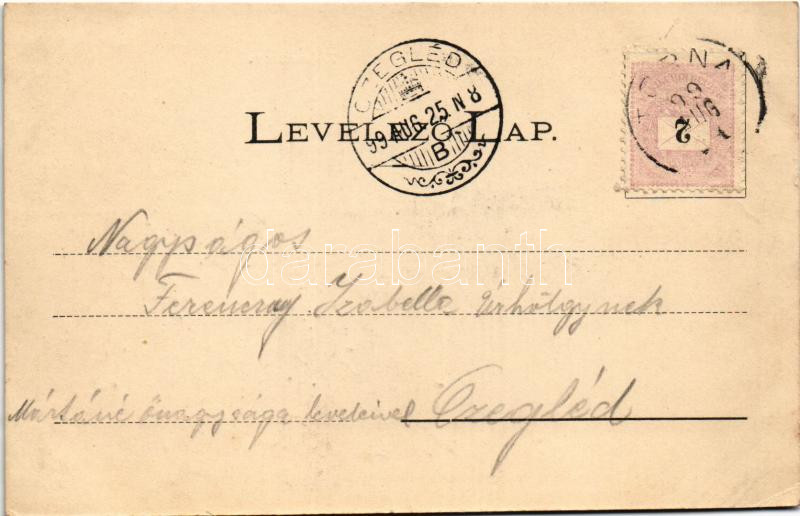 CZEGLÉD
99 AUG. 25 N 8
B
LEVELEZŐ-LAP.
TORNA
99
AUG
2
Nagyságos
Ferenczy Izabella Úrhölgynek
Czegléd
darabanth